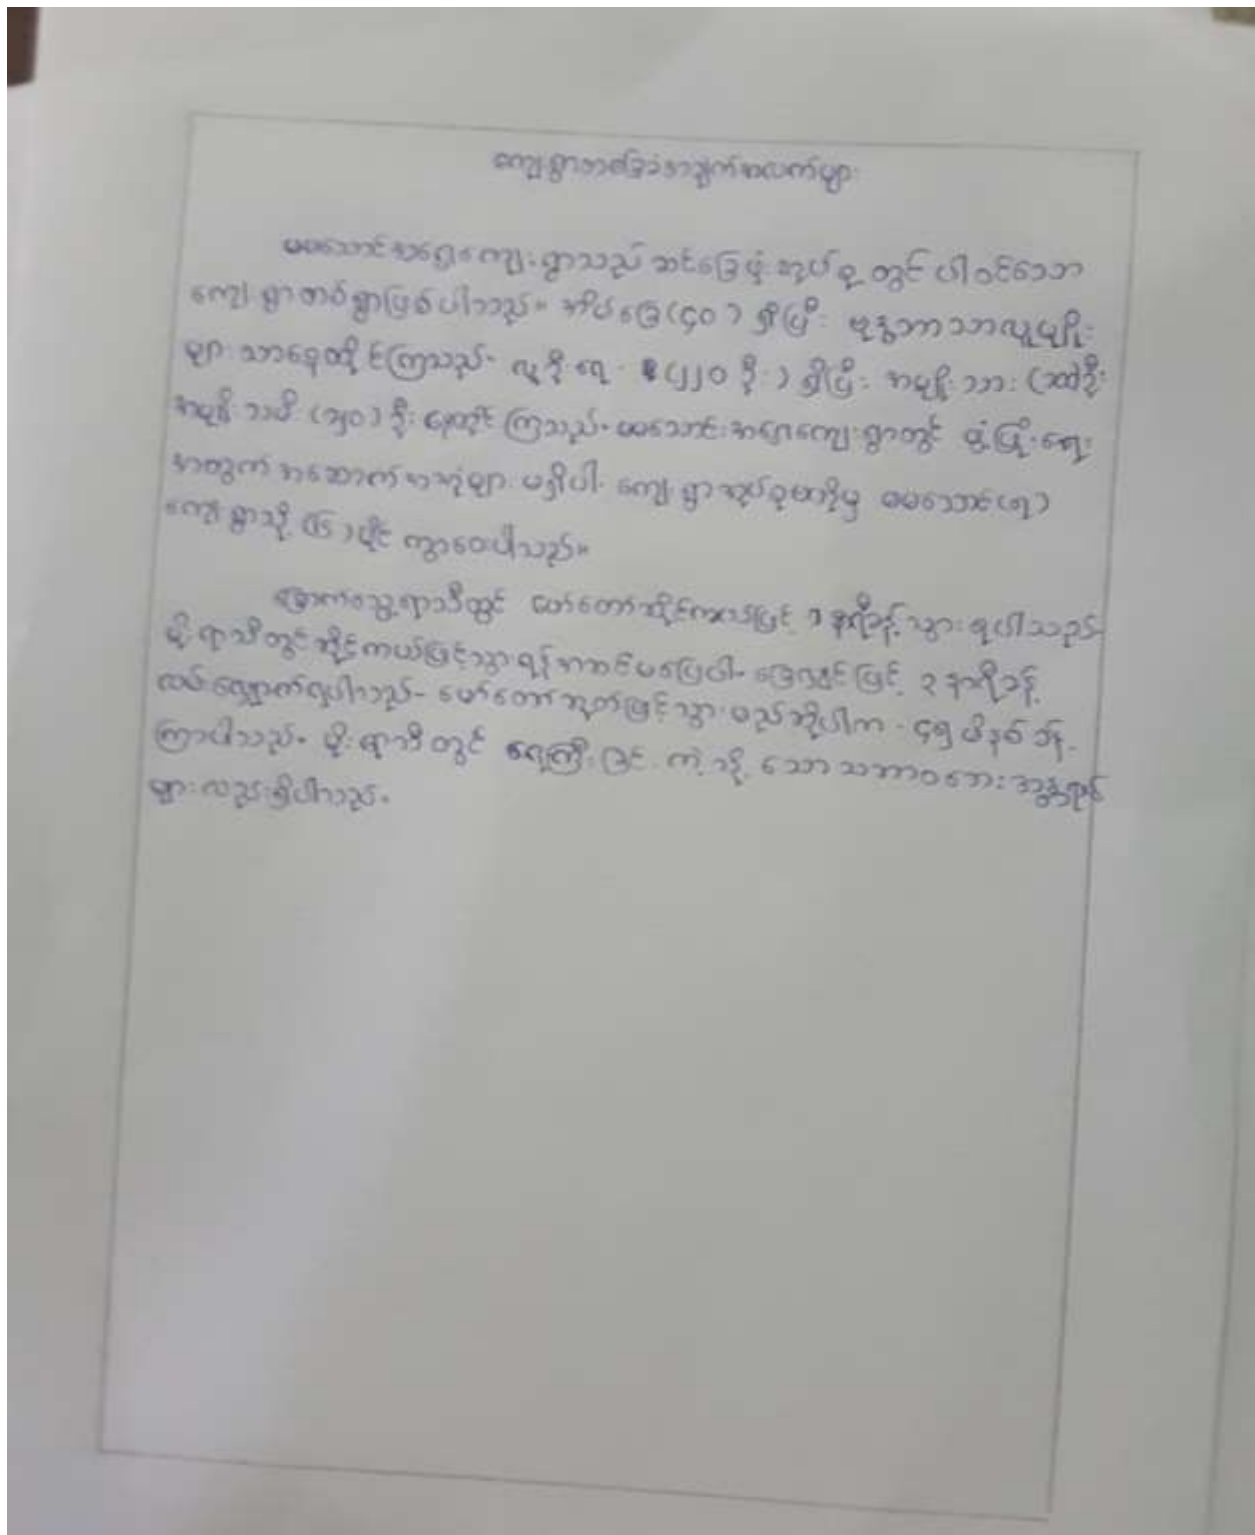 ကျေးရွာအခြေခံအချက်အလက်များ
မမသောင်းအရှေ့ကျေးရွာသည် ဆင်ခြေဖုံးအုပ်စုတွင် ပါဝင်သော
ကျေးရွာတစ်ရွာဖြစ်ပါသည်။ အိမ်ခြေ(၄၀) ရှိပြီး ဗုဒ္ဓဘာသာလူမျိုး
များသာနေထိုင်ကြသည်။ လူဦးရေ (၂၂၀ ဦး) ရှိပြီး အမျိုးသား
အမျိုးသမီး ဦး နေထိုင်ကြသည်။ မမသောင်းအရှေ့ကျေးရွာတွင် ဖွံ့ဖြိုးရေး
အတွက် အဆောက်အအုံများ မရှိပါ။ ကျေးရွာအုပ်စုမှ
ကျေးရွာသို့ (၆) မိုင် ကွာဝေးပါသည်။
ခြောက်သွေ့ရာသီတွင် မော်တော်ဆိုင်ကယ်ဖြင့် ၁ နာရီခန့် သွားရပါသည်။
မိုးရာသီတွင် ဆိုင်ကယ်ဖြင့်သွားရန် အဆင်မပြေပါ။ ခြေလျင်ဖြင့် ၃ နာရီခန့်
လမ်းလျှောက်ရပါသည်။ မော်တော်ဘုတ်ဖြင့်သွားမည်ဆိုပါက ၄၅ မိနစ်ခန့်
ကြာပါသည်။ မိုးရာသီတွင် ရေကြီးခြင်းကဲ့သို့သော သဘာဝဘေးအန္တရာယ်
များလည်းရှိပါသည်။